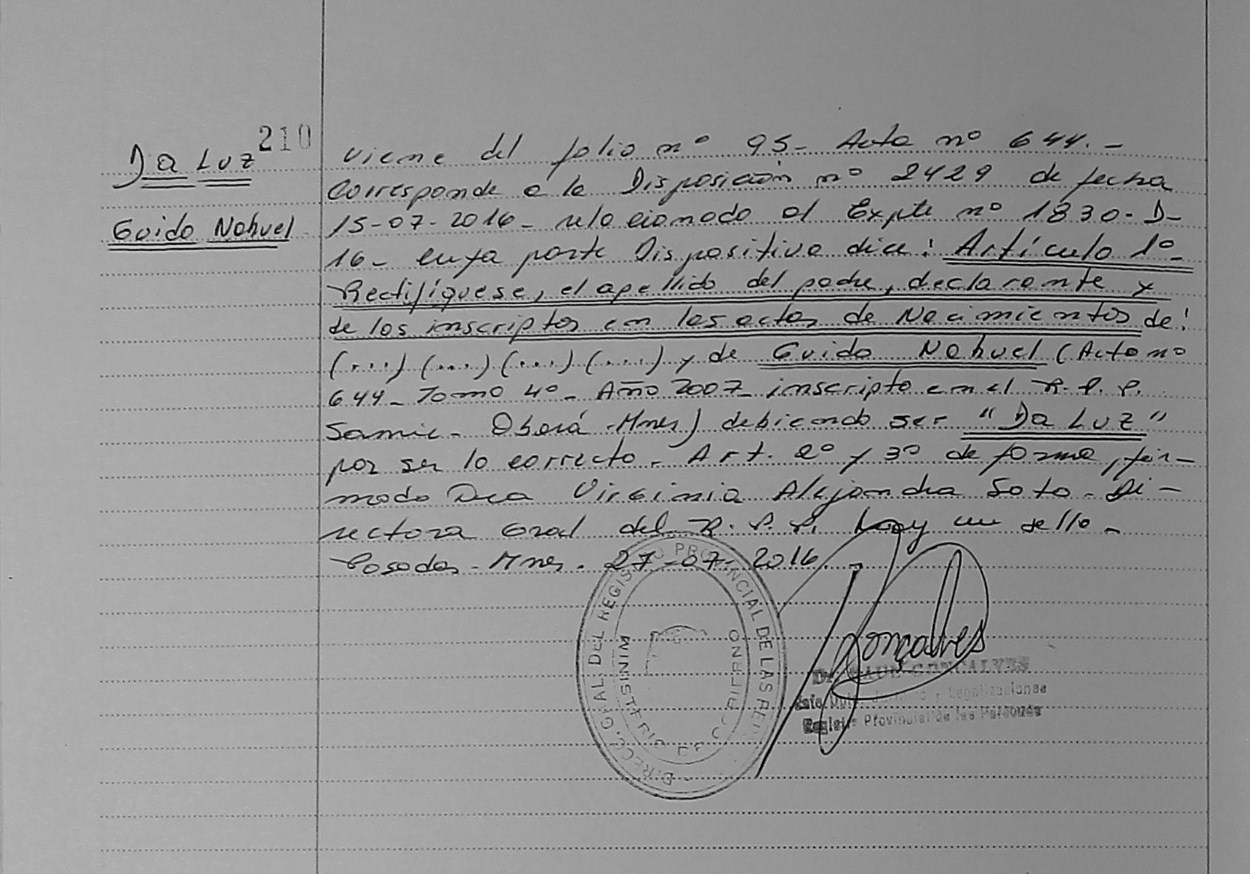 210
Da Luz
Guido Nahuel
viene del folio nº 95- Acta nº 644.-
Corresponde a la Disposición nº 2429 de fecha
15-07-2016- relacionado al Expte nº 1830-D-
16- cuya parte Dispositiva dice: Artículo 1º-
Rectifíquese, el apellido del padre, declarante y
de los inscriptos en las actas de Nacimientos de:
(...) (...) (...) (...) y de Guido Nahuel (Acta nº
644- Tomo 4º- Año 2007 inscripto en el R.P.P.
Samic- Oberá-Mnes) debiendo ser "Da Luz"
por ser lo correcto. Art. 2º y 3º de forma, fir-
mado Dra Virginia Alejandra Soto- Di-
rectora Gral del R.P.P. hay un sello-
Posadas-Mnes. 27-07-2016
DIRECC. GRAL. DEL REGISTRO PROVINCIAL DE LAS PER
MINISTERIO DE GOBIERNO
Gonçalves
GONCALVES
Legalizaciones
Registro Provincial de las Personas